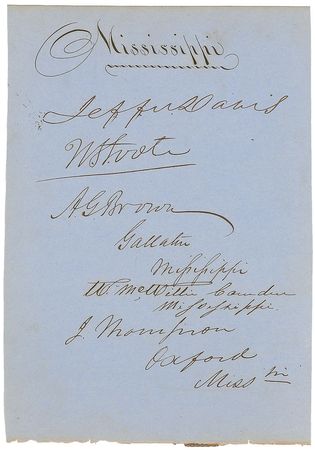 Mississippi
Jeffn. Davis
H S Foote
A G Brown
Gallatin
Mississippi
W. McWillie Camden
Mississippi.
J. Thompson
Oxford
Miss